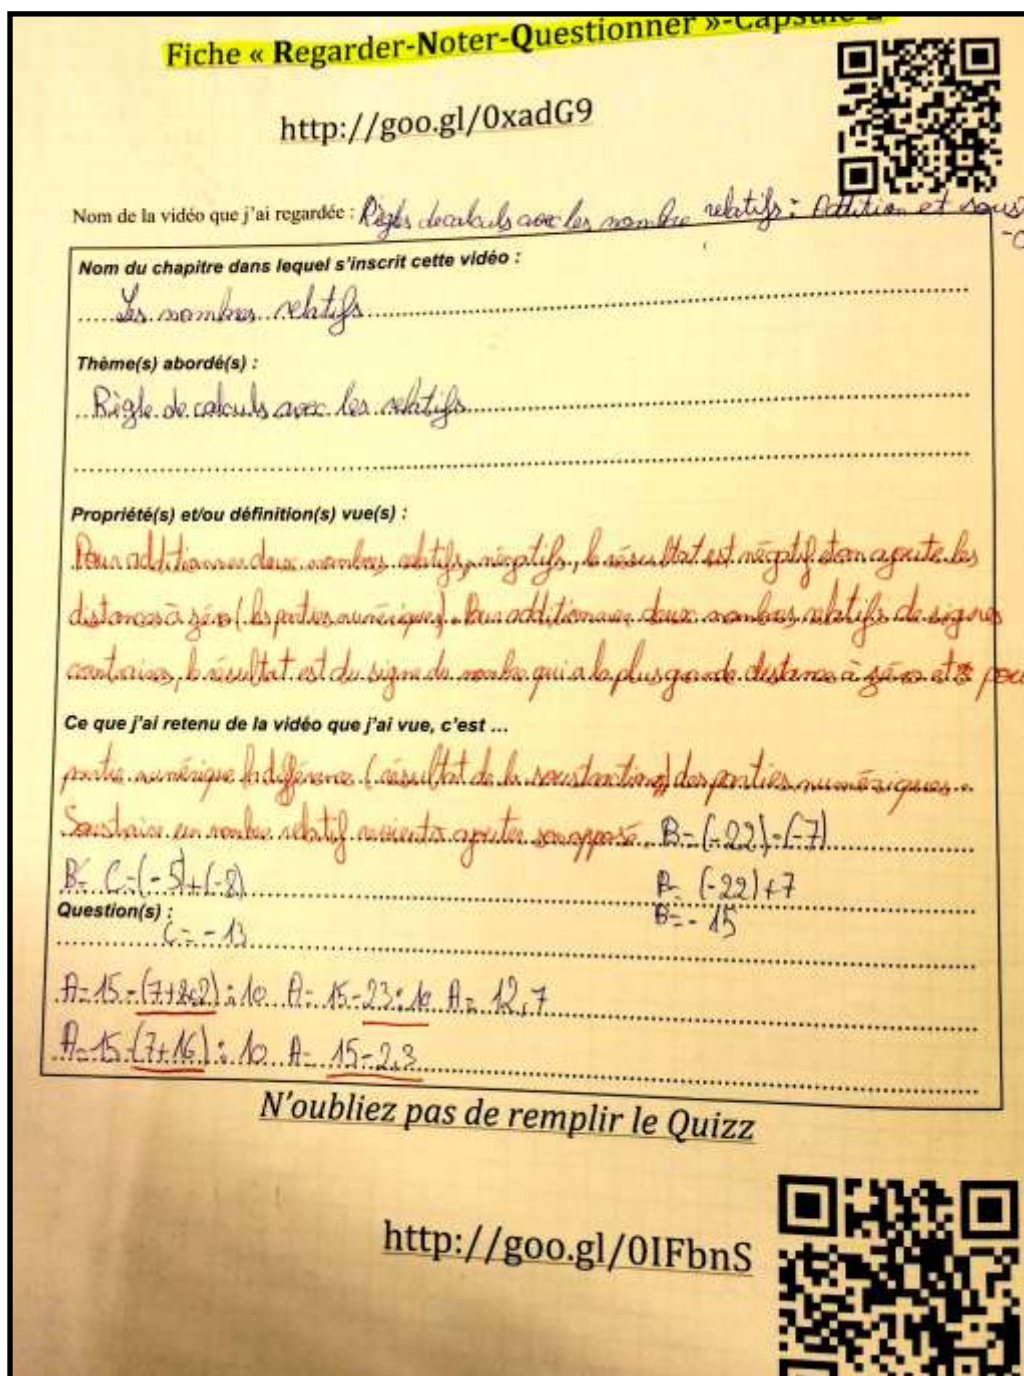 Fiche « Regarder-Noter-Questionner »-Capsule 2
http://goo.gl/0xadG9
Nom de la vidéo que j'ai regardée : Règles de calculs avec les nombre relatifs : Addition et sous
Nom du chapitre dans lequel s'inscrit cette vidéo :
Les nombres relatifs
Thème(s) abordé(s) :
Règle de calculs avec les relatifs
Propriété(s) et/ou définition(s) vue(s) :
Pour additionner deux nombres relatifs négatifs, le résultat est négatif et on ajoute les
distances à zéro (les parties numériques). Pour additionner deux nombres relatifs de signes
contraires, le résultat est du signe du nombre qui a la plus grande distance à zéro et pour
Ce que j'ai retenu de la vidéo que j'ai vue, c'est ...
partie numérique la différence (résultat de la soustraction) des parties numériques.
Soustraire un nombre relatif revient à ajouter son opposé. B = (-22) - (-7)
B = C = (-5) + (-8) B = (-22) + 7
Question(s) : B = - 15
C = - 13
A = 15 - (7+8×2) : 10 A = 15 - 23 : 10 A = 12,7
A = 15 - (7+16) : 10 A = 15 - 2,3
N'oubliez pas de remplir le Quizz
http://goo.gl/0IFbnS